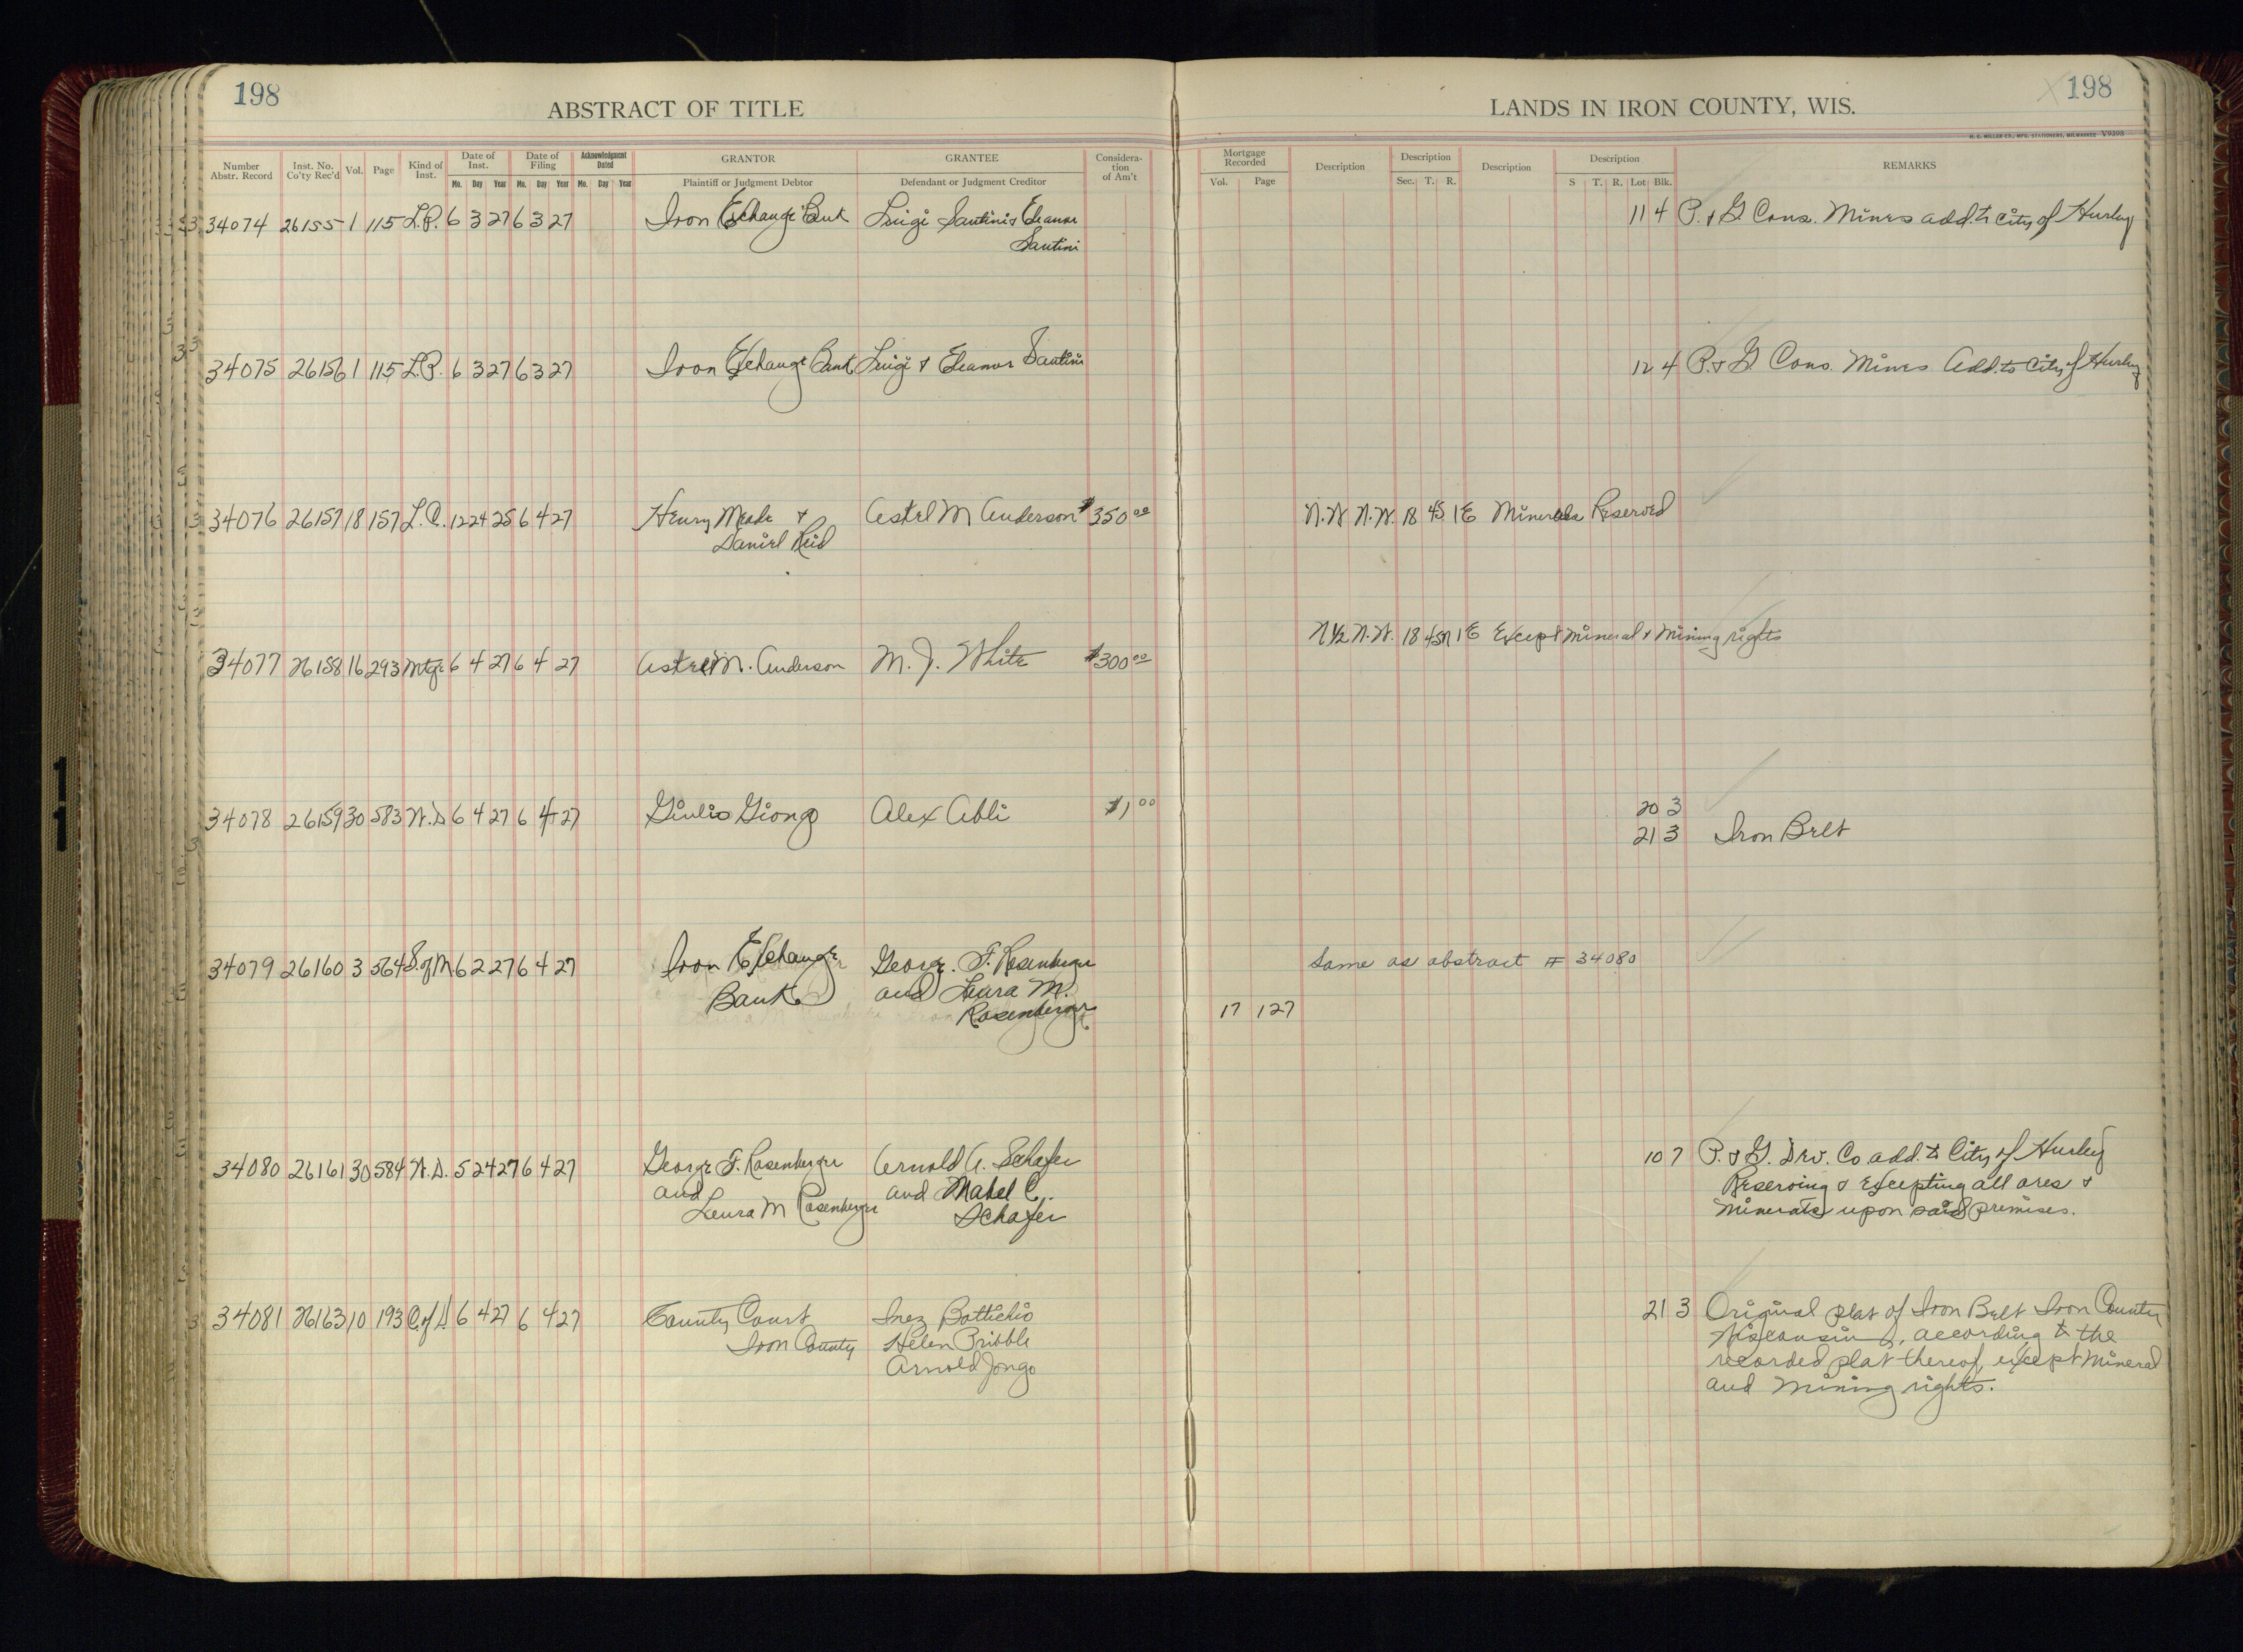 198
198
ABSTRACT OF TITLE
LANDS IN IRON COUNTY, WIS.
H. C. MILLER CO., MFG. STATIONERS, MILWAUKEE V9398
Number Abstr. Record Inst. No. Co'ty Rec'd Vol. Page Kind of Inst. Date of Inst. Date of Filing Acknowledgment Dated GRANTOR GRANTEE Considera-tion of Am't Mortgage Recorded Description Description Description Description REMARKS
Mo. Day Year Mo. Day Year Mo. Day Year Plaintiff or Judgment Debtor Defendant or Judgment Creditor Vol. Page Sec. T. R. S T. R. Lot Blk.
34074 26155 1 115 L.P. 6 3 27 6 3 27 Iron Exchange Bank Luigi Santini & Eleanor 11 4 P. & G. Cons. Mines add. to City of Hurley
Santini
34075 26156 1 115 L.P. 6 3 27 6 3 27 Iron Exchange Bank Luigi & Eleanor Santini 12 4 P. & G. Cons. Mines Add. to City of Hurley
34076 26157 18 157 L.C. 12 24 25 6 4 27 Henry Meade & Astel M Anderson $350 00 N.W N.W. 18 45 1E Minerals Reserved
Daniel Reid
N½ N.W. 18 45N 1E Except Mineral & Mining rights
34077 26158 16 293 Mtge 6 4 27 6 4 27 Astel M. Anderson M. J. White $300 00
34078 26159 30 583 W.D 6 4 27 6 4 27 Giulio Giongo Alex Abli $1 00 20 3
21 3 Iron Belt
34079 26160 3 564 S. of M. 6 2 27 6 4 27 Iron Exchange George F. Rosenberger Same as abstract # 34080
Bank and Laura M.
Rosenberger 17 127
34080 26161 30 584 W.D. 5 24 27 6 4 27 George F. Rosenberger Arnold A. Schafer 10 7 P. & G. Dev. Co add. to City of Hurley
and and Mabel C. Reserving & Excepting all ores &
Laura M Rosenberger Schafer Minerals upon said premises.
34081 26163 10 193 C. of D 6 4 27 6 4 27 County Court Inez Bottichio 21 3 Original plat of Iron Belt Iron County
Iron County Helen Pribble Wisconsin, according to the
Arnold Jongo recorded plat thereof, except Mineral
and mining rights.